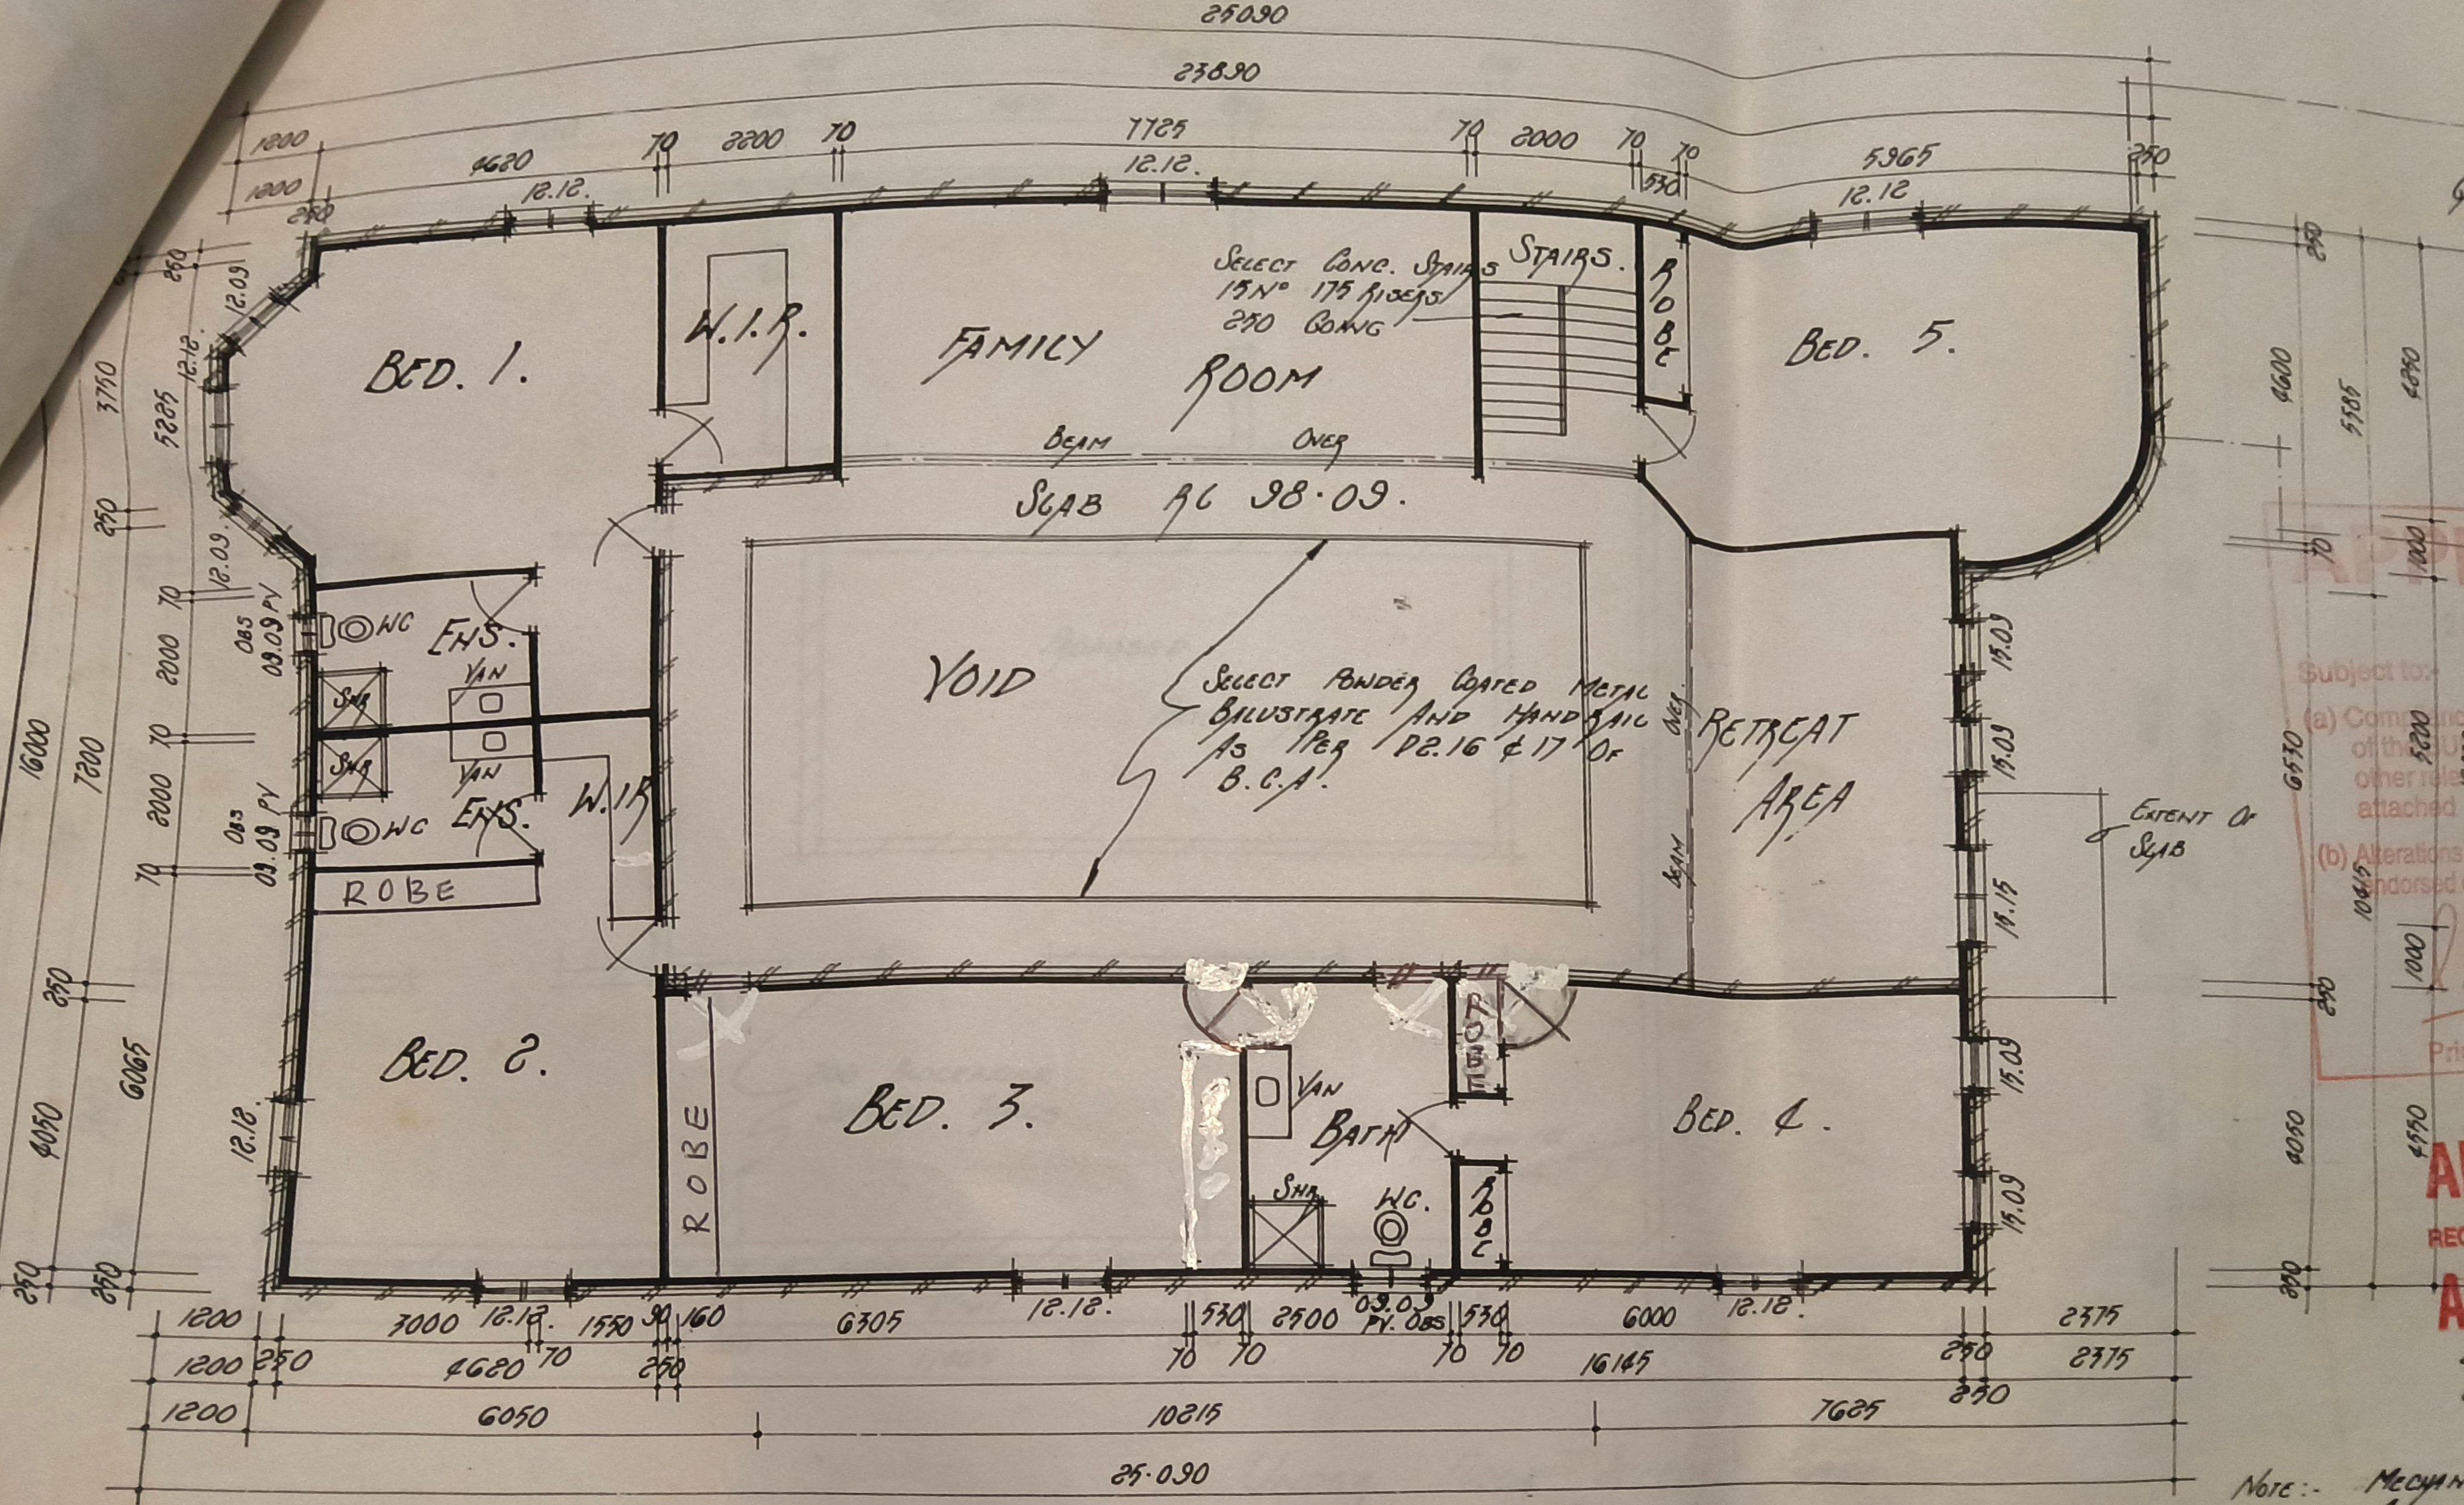 25090
23890
1200 4620 70 2200 70 7725 70 2000 70 70 5965 250
1200 250 12.12. 12.12. 530 12.12
BED. 1.
W.I.R.
FAMILY ROOM
SELECT CONC. STAIRS
15 Nº 175 RISERS
250 GOING
STAIRS.
ROBE
BED. 5.
BEAM OVER
SLAB RL 98.09.
VOID
SELECT POWDER COATED METAL
BALUSTRATE AND HANDRAIL
AS PER D2.16 & 17 OF
B.C.A.
BEAM OVER
RETREAT
AREA
EXTENT OF
SLAB
WC ENS.
SHR VAN
SHR VAN
WC ENS.
W.I.R
ROBE
BED. 2.
ROBE
BED. 3.
VAN
BATH
SHR
WC.
ROBE
ROBE
BED. 4.
12.09
12.12.
12.09
OBS
09.09 PV
OBS
09.09 PV
12.12.
250
5285
70
2000
70
2000
70
6065
250
3750
250
7200
250
4050
250
16000
15.09
15.09
15.15
15.09
15.09
250
4600
70
6530
250
4050
250
5585
10415
4850
1000
5200
1000
4550
1200 3000 12.12. 1550 90 160 6305 12.12. 530 2500 09.09 530 6000 12.12. 2375
PV. OBS
1200 250 4620 70 250 70 70 70 70 16145 250 2375
250
1200 6050 10215 7625
25.090
NOTE:-
Subject to:-
(a)
of the
other
attached
(b) Alterations
endorsed